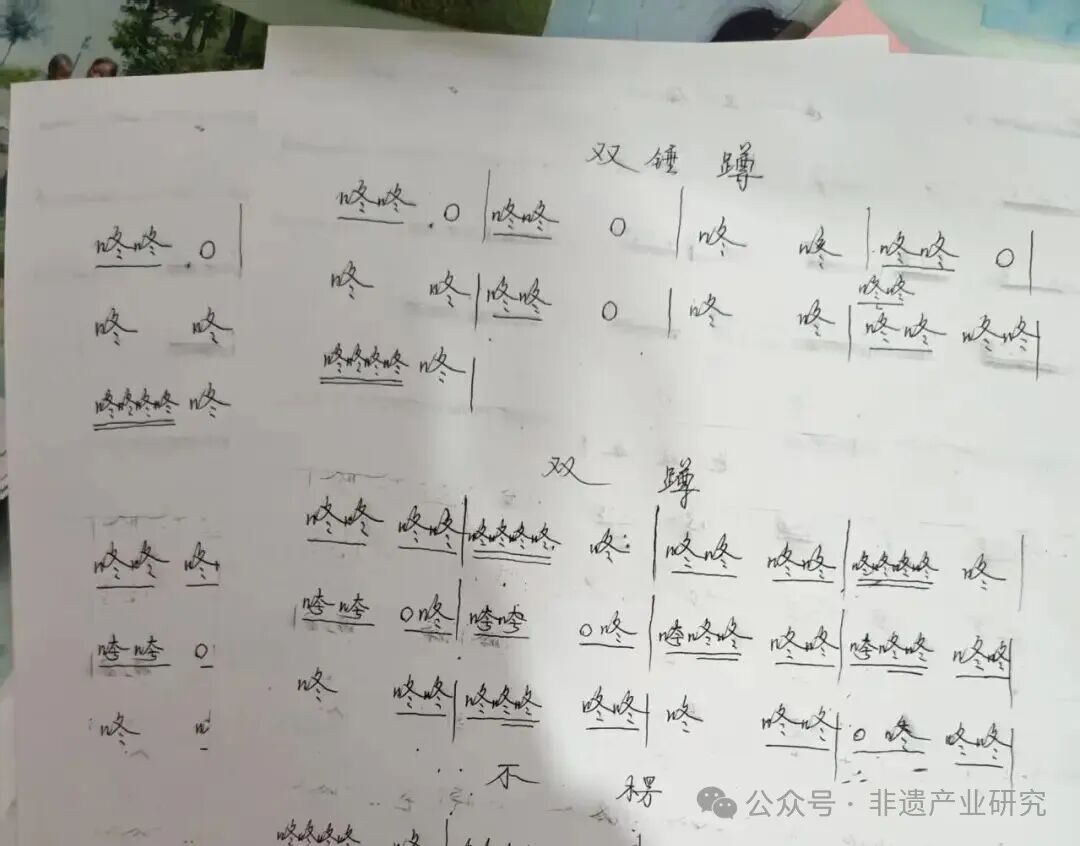 双锤蹲
咚咚 . 0 | 咚咚 0 | 咚 咚 | 咚咚 0 |
咚咚
咚 咚 | 咚咚 0 | 咚 咚 | 咚咚 咚咚 |
咚咚咚咚 咚 |
双 蹲
咚咚 咚咚 | 咚咚咚咚 咚 | 咚咚 咚咚 | 咚咚咚咚 咚 |
咵咵 0咚 | 咵咵 0咚 | 咵咚咚 咚咚 | 咵咚咚 咚咚 |
咚 咚咚 | 咚咚咚 咚咚 | 咚 咚咚 | 0咚 咚咚 |
不
咚咚咚咚
咚咚 . 0 |
咚 咚
咚咚咚咚 咚
咚咚 咚
咵咵 0
咚
公众号 · 非遗产业研究